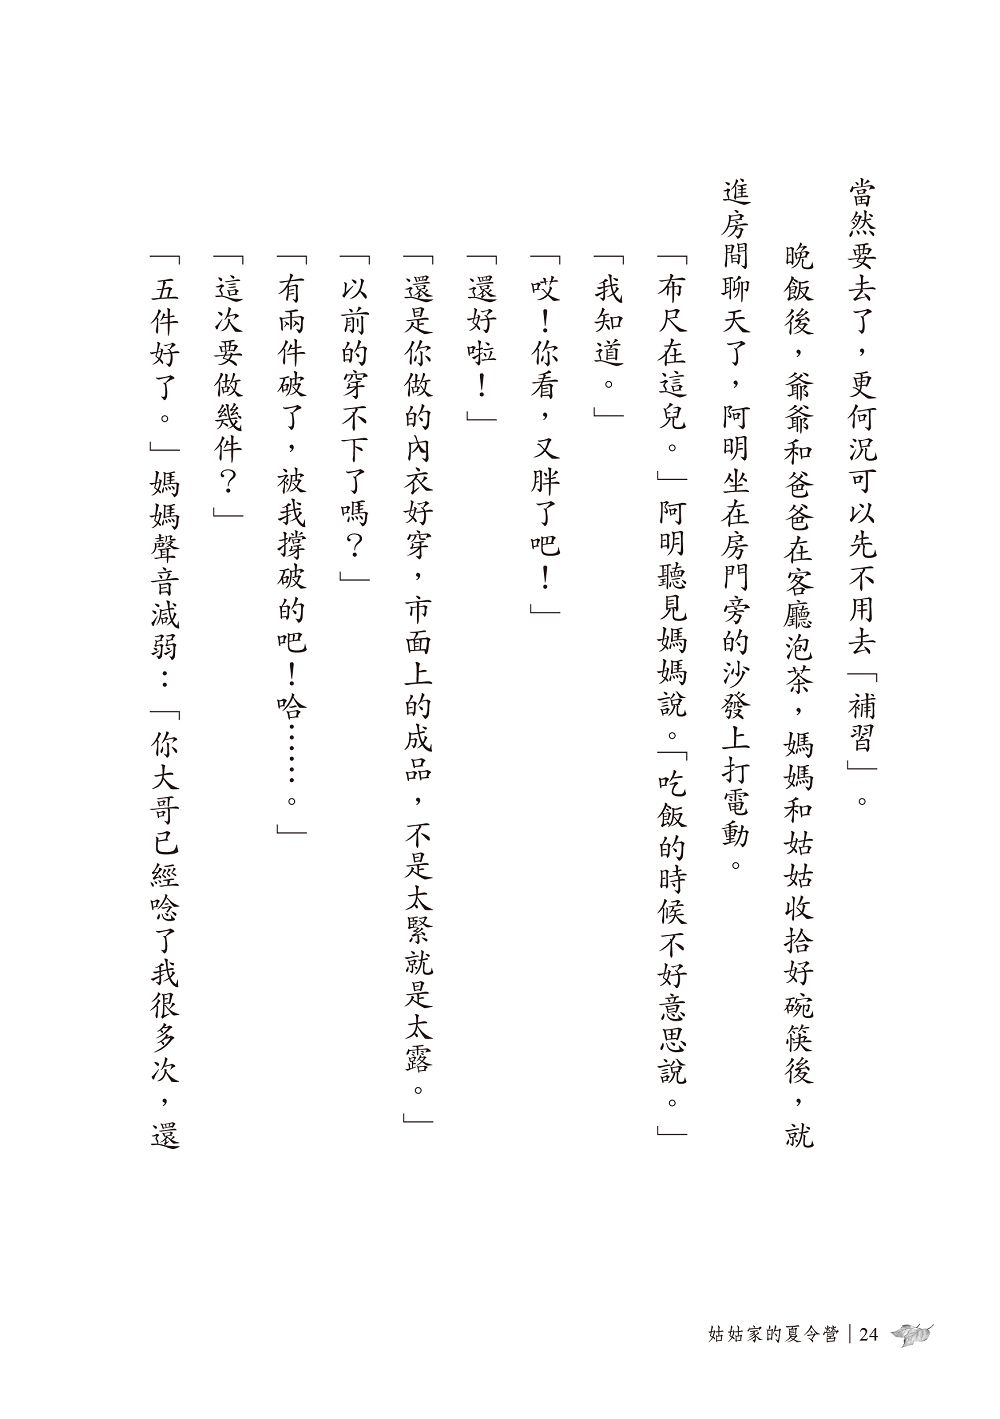 當然要去了，更何況可以先不用去「補習」。
晚飯後，爺爺和爸爸在客廳泡茶，媽媽和姑姑收拾好碗筷後，就
進房間聊天了，阿明坐在房門旁的沙發上打電動。
「布尺在這兒。」阿明聽見媽媽說。「吃飯的時候不好意思說。」
「我知道。」
「哎！你看，又胖了吧！」
「還好啦！」
「還是你做的內衣好穿，市面上的成品，不是太緊就是太露。」
「以前的穿不下了嗎？」
「有兩件破了，被我撐破的吧！哈……。」
「這次要做幾件？」
「五件好了。」媽媽聲音減弱：「你大哥已經唸了我很多次，還
姑姑家的夏令營｜24